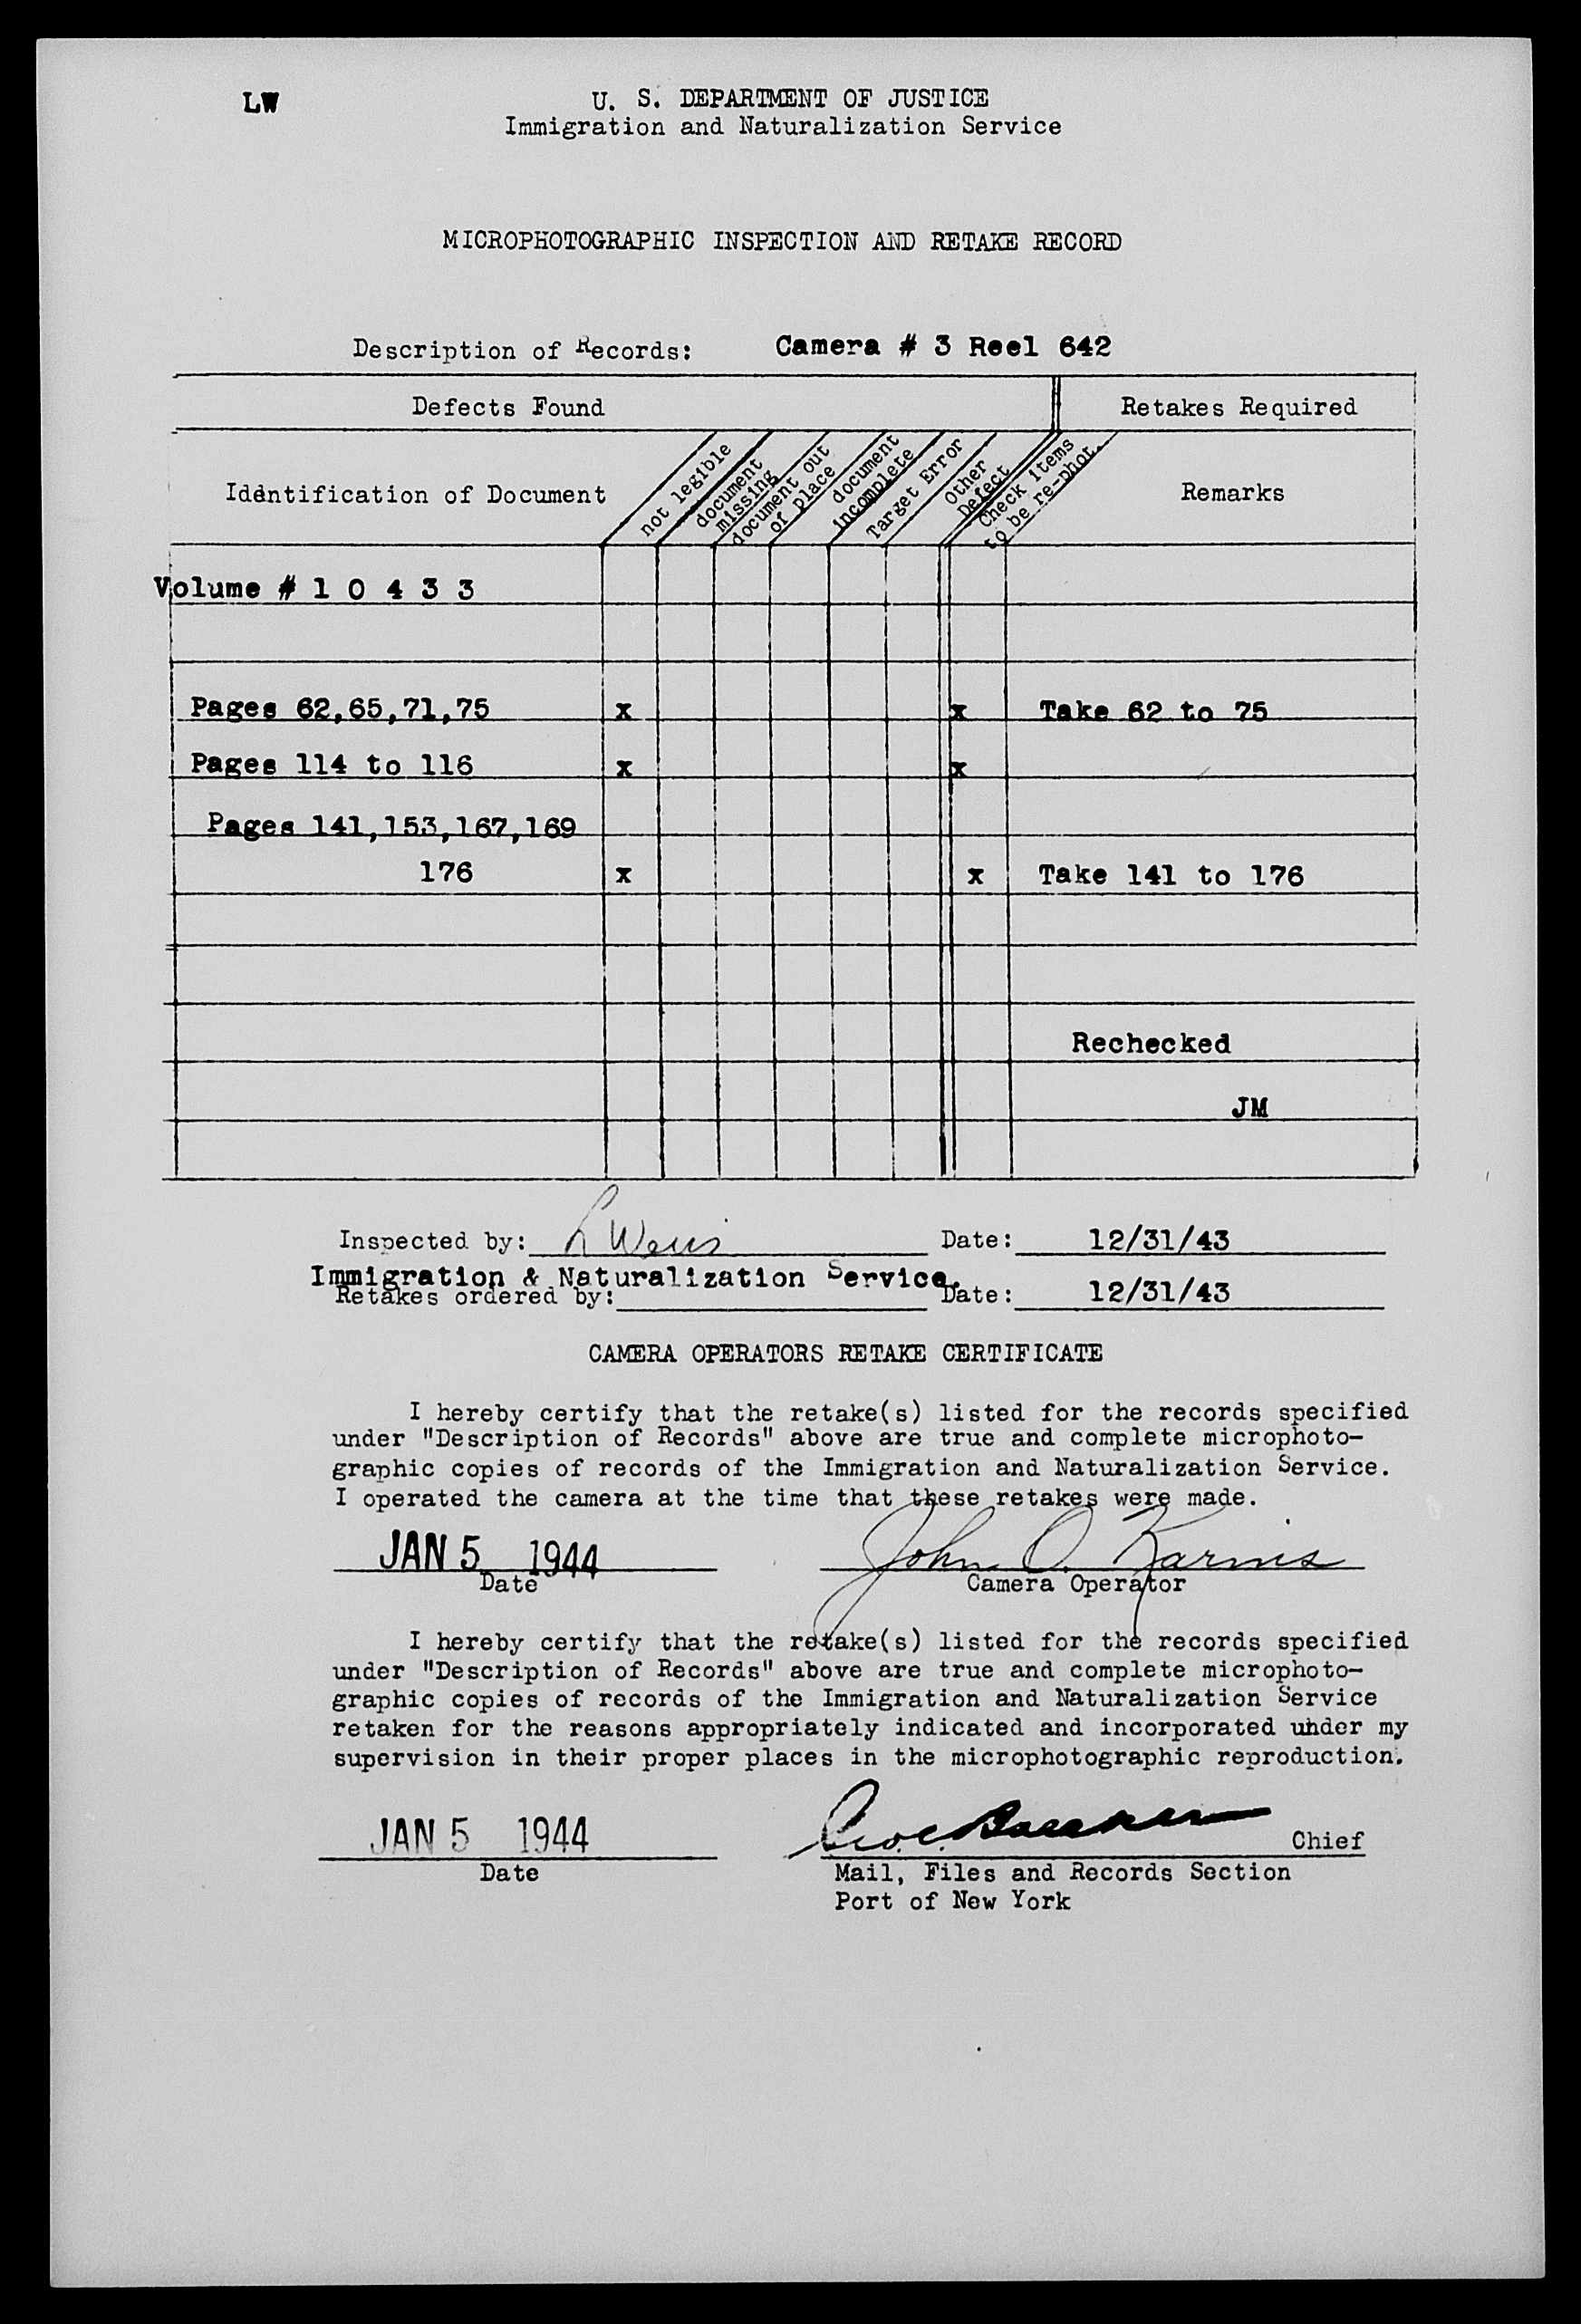 LW
U. S. DEPARTMENT OF JUSTICE
Immigration and Naturalization Service
MICROPHOTOGRAPHIC INSPECTION AND RETAKE RECORD
Description of Records: Camera # 3 Reel 642
Defects Found Retakes Required
Identification of Document
not legible
document
missing
document out
of place
document
incomplete
Target Error
Other
Defect
Check items
to be re-phot.
Remarks
Volume # 1 0 4 3 3
Pages 62,65,71,75 x x Take 62 to 75
Pages 114 to 116 x x
Pages 141,153,167,169
176 x x Take 141 to 176
Rechecked
JM
Inspected by: L Date: 12/31/43
Immigration & Naturalization Service.
Retakes ordered by: Date: 12/31/43
CAMERA OPERATORS RETAKE CERTIFICATE
I hereby certify that the retake(s) listed for the records specified
under "Description of Records" above are true and complete microphoto-
graphic copies of records of the Immigration and Naturalization Service.
I operated the camera at the time that these retakes were made.
JAN 5 1944 John O.
Date Camera Operator
I hereby certify that the retake(s) listed for the records specified
under "Description of Records" above are true and complete microphoto-
graphic copies of records of the Immigration and Naturalization Service
retaken for the reasons appropriately indicated and incorporated under my
supervision in their proper places in the microphotographic reproduction.
JAN 5 1944 Chief
Date Mail, Files and Records Section
Port of New York